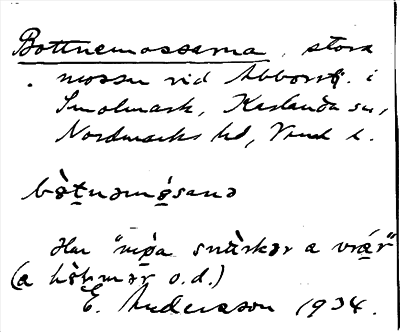 Bottnemossarna, stora
mossar vid Abborrtj. i
Smolmark, Karlanda sn,
Nordmarks hd, Vrml. l.
bòt̠nəmo̠sanə
Har "mo̠a snàrkər a vrä̠r"
(a hòlmər o.d.)
E. Andersson 1934.